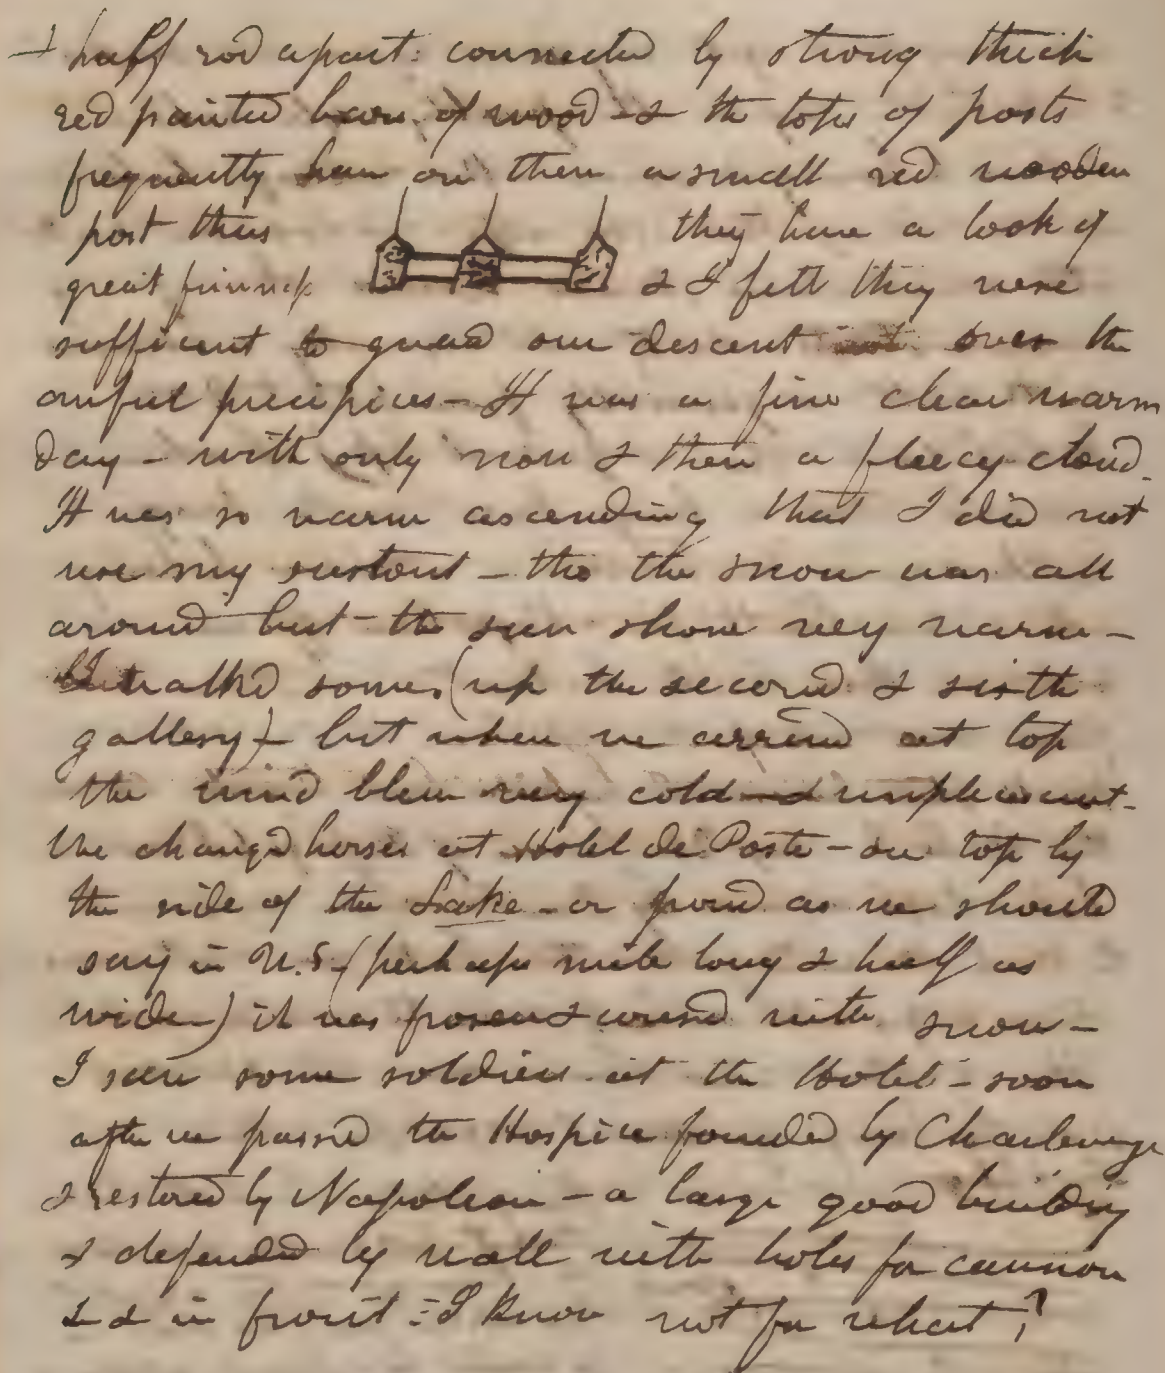 & half rod apart: connected by strong thick
red painted bars of wood - & the tops of posts
frequently have on them a small red wooden
post thus they have a look of
great firmness & I felt they were
sufficent to guard our descent over the
awful precipices - It was a fine clear warm
day - with only now & then a fleecy cloud.
It was so warm ascending that I did not
use my surtout - tho the snow was all
around but the sun shone very warm -
I walked some (up the second & sixth
gallery) - but when we arrived at top
the wind blew very cold & unpleasant -
We changed horses at Hotel de Poste - on top by
the side of the Lake - or pond as we should
say in U.S. (perhaps mile long & half as
wide) it was frozen & covered with snow -
I saw some soldiers at the Hotel - soon
after we passed the Hospice founded by Charlemage
& restored by Napoleon - a large good building
& defended by wall with holes for cannon
& & in front - I know not for what?